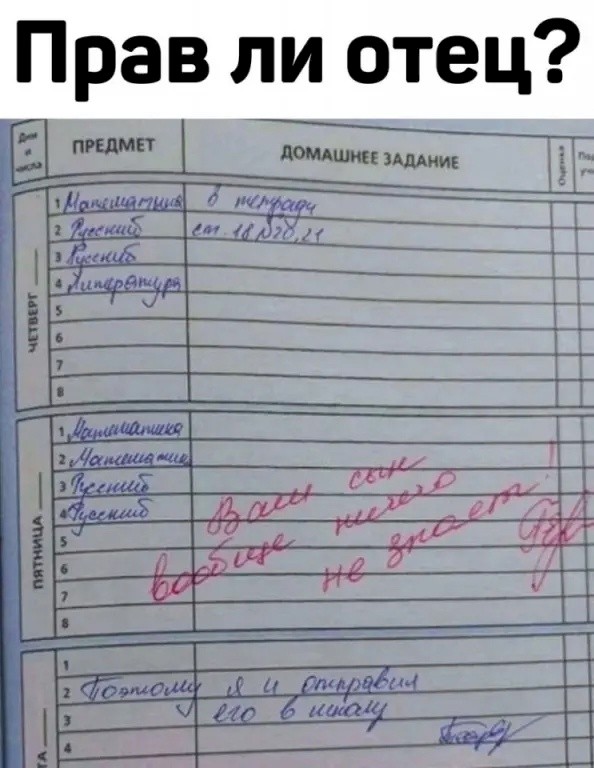 Прав ли отец?
Дни и числа
ПРЕДМЕТ
ДОМАШНЕЕ ЗАДАНИЕ
Оценка
ЧЕТВЕРГ
1 Математика в тетради
2 Русский ст. 18 №20,21
3 Русский
4 Литература
5
6
7
8
ПЯТНИЦА
1 Математика
2 Математика
3 Русский
4 Русский
5
6
7
8
Ваш сын
вообще ничего
не знает!
1
2 Поэтому я и отправил
3 его в школу
4